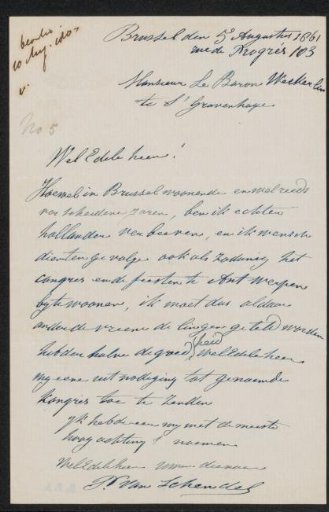 Brussel den 5e Augustus 1861
rue du Progrès 103
10 Aug.
v.
Monsieur Le Baron Weckerlin
te s'Gravenhage
No 5
WelEdele heer!
Hoewel in Brussel woonende en wel reeds
verscheidene Jaren, ben ik echter
hollander verbleven, en ik wensch
dientengevolge ook als zoodanig het
congres en de feesten te Antwerpen
by te woonen, ik moet dus aldaar
onder de vreemdelingen geteld worden
hebden halve de goedheid WelEdele heer
my eene uitnodiging tot genoemde
kongres toe te zenden
ik heb de eer my met de meeste
hoogachting te noemen
WelEdele heer uw dienaar
P. Van Schendel